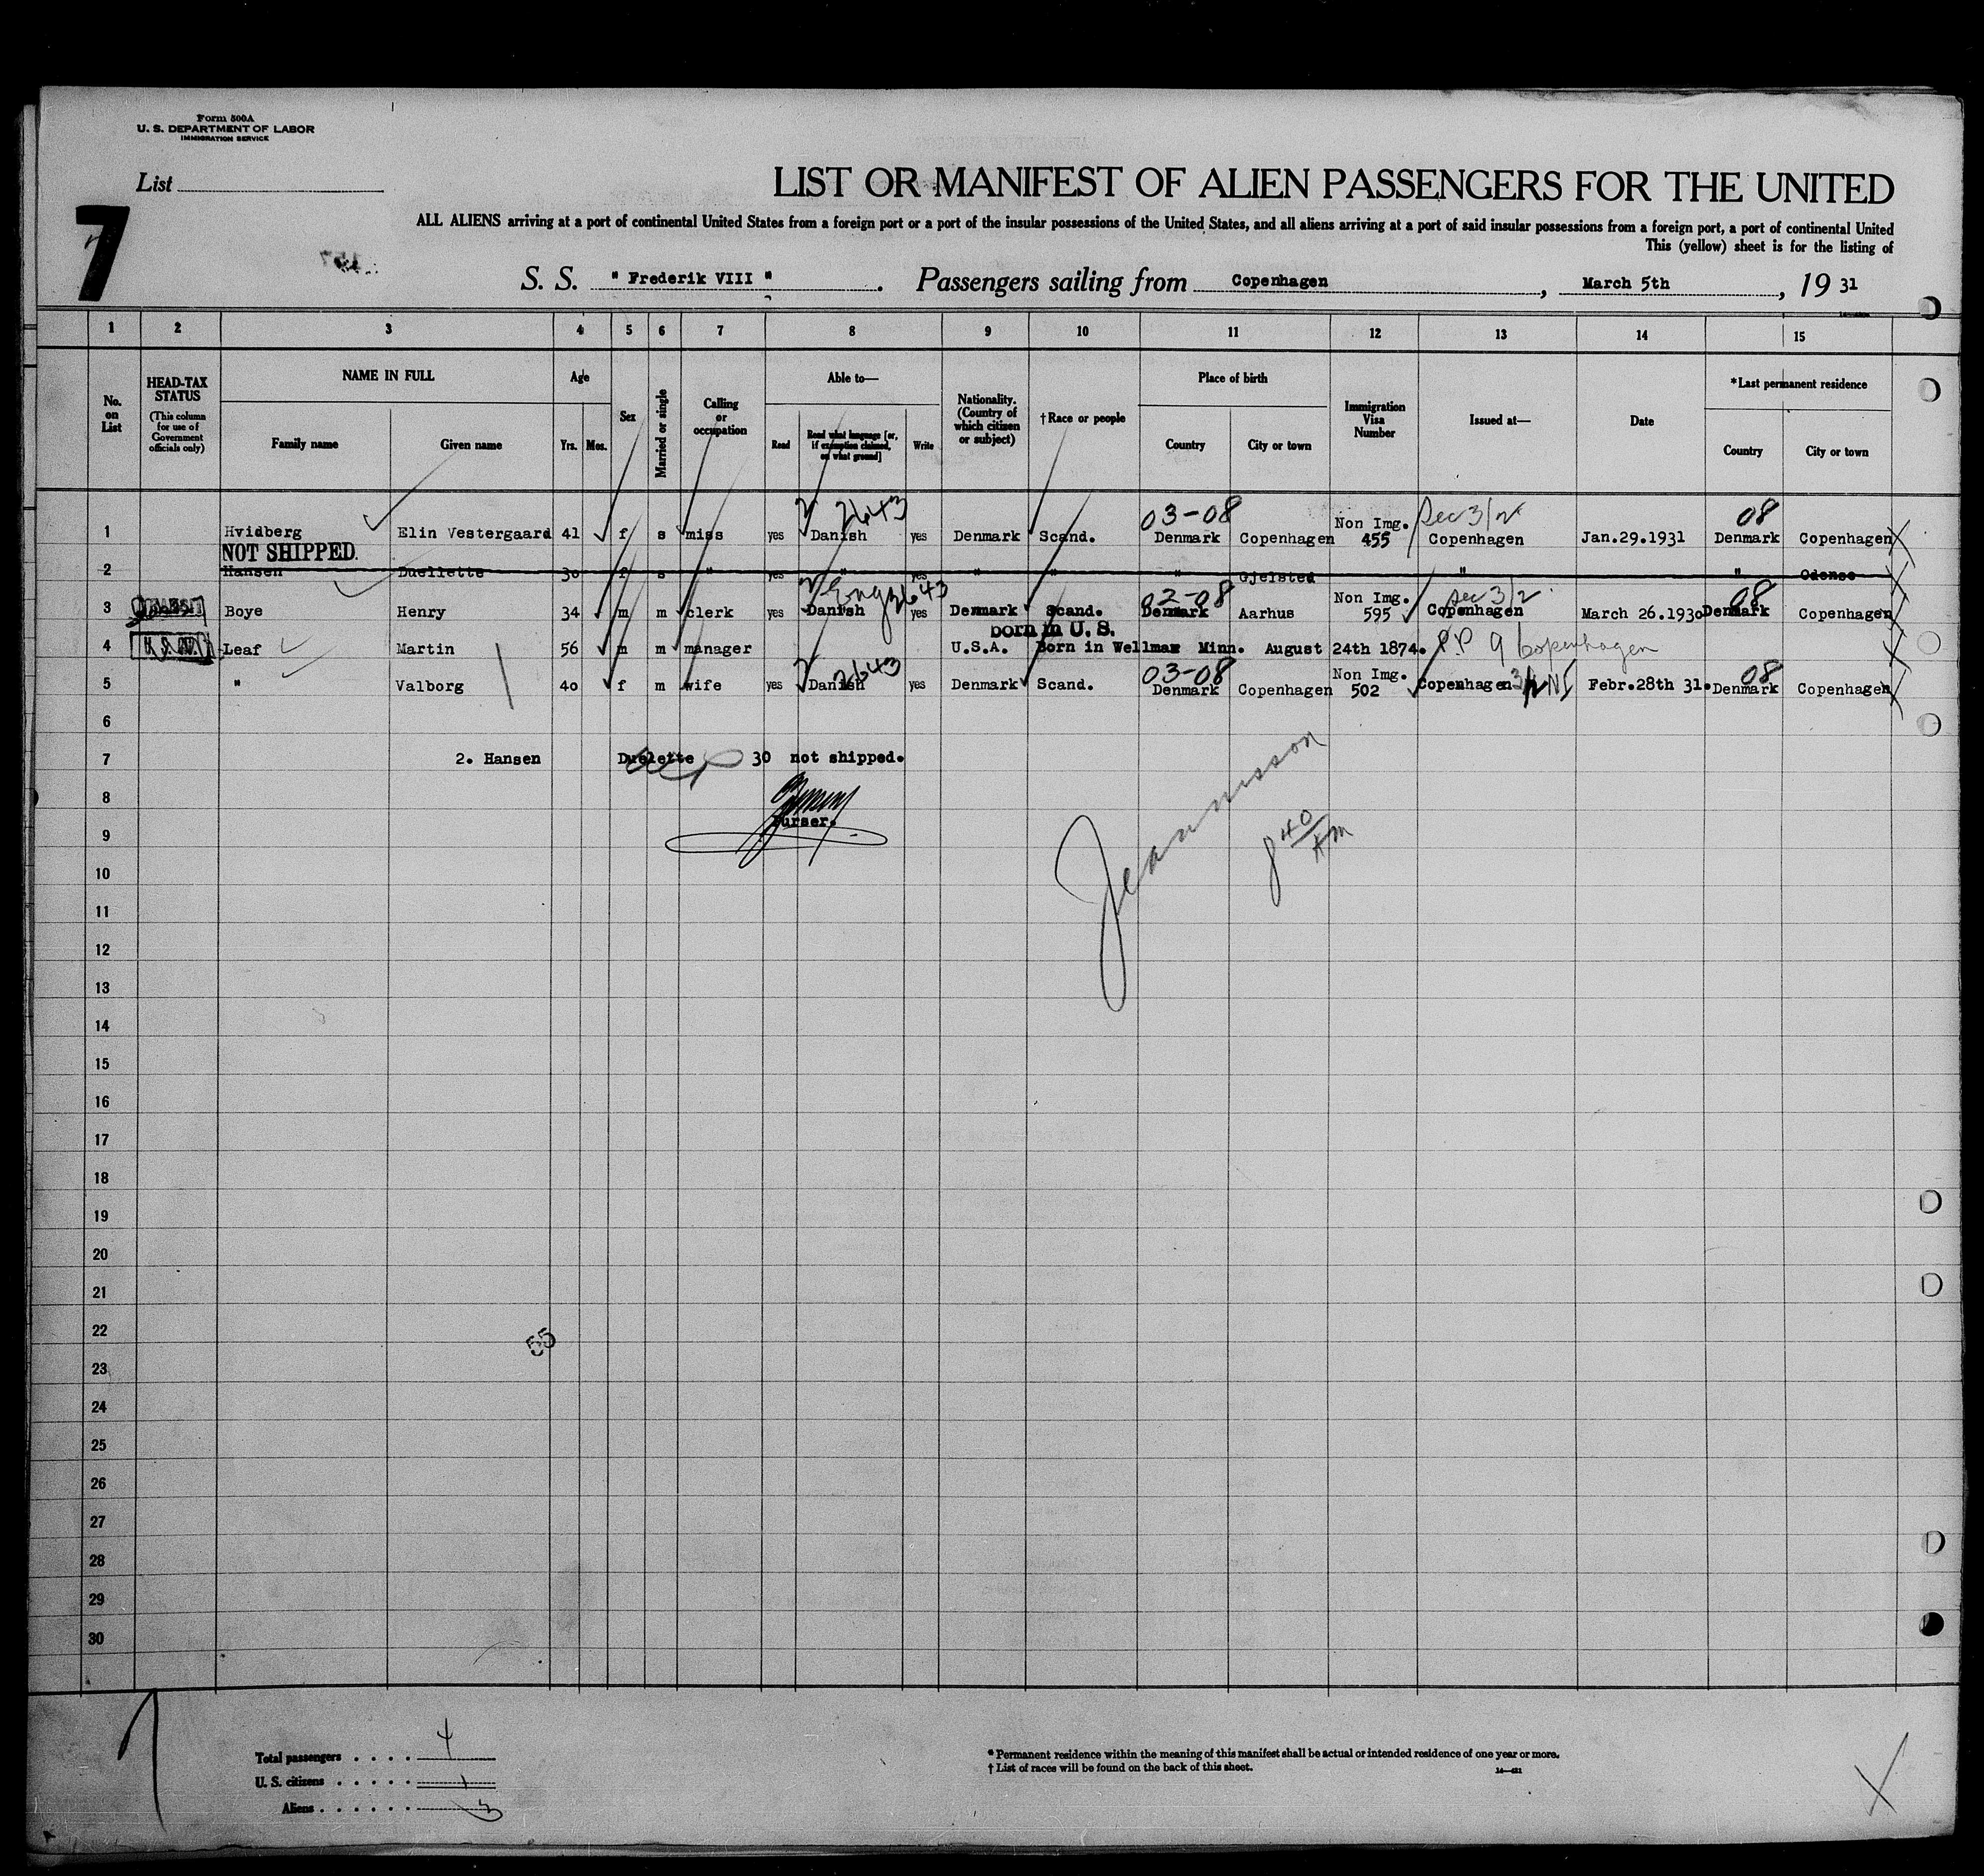 Form 500A
U. S. DEPARTMENT OF LABOR
IMMIGRATION SERVICE
List
7
LIST OR MANIFEST OF ALIEN PASSENGERS FOR THE UNITED
ALL ALIENS arriving at a port of continental United States from a foreign port or a port of the insular possessions of the United States, and all aliens arriving at a port of said insular possessions from a foreign port, a port of continental United
This (yellow) sheet is for the listing of
S. S. " Frederik VIII " . Passengers sailing from Copenhagen , March 5th , 19 31
1 2 3 4 5 6 7 8 9 10 11 12 13 14 15
No. on List
HEAD-TAX STATUS (This column for use of Government officials only)
NAME IN FULL
Family name Given name
Age
Yrs. Mos.
Sex
Married or single
Calling or occupation
Able to—
Read Read what language [or, if exemption claimed, on what ground] Write
Nationality. (Country of which citizen or subject)
†Race or people
Place of birth
Country City or town
Immigration Visa Number
Issued at—
Date
*Last permanent residence
Country City or town
2643 03-08 Sec 3/2 08
1 Hvidberg Elin Vestergaard 41 f s miss yes Danish yes Denmark Scand. Denmark Copenhagen Non Img. 455 Copenhagen Jan.29.1931 Denmark Copenhagen
NOT SHIPPED.
2 Hansen Duellette 30 f s " yes " yes " " " Gjelsted " " Odense
Eng 2643 02-08 Sec 3/2 08
3 Boye Henry 34 m m clerk yes Danish yes Denmark Scand. Denmark Aarhus Non Img. 595 Copenhagen March 26.1930 Denmark Copenhagen
born in U. S.
4 Leaf Martin 56 m m manager U.S.A. Born in Wellmar Minn. August 24th 1874. P.P 9 Copenhagen
2643 03-08 08
5 " Valborg 40 f m wife yes Danish yes Denmark Scand. Denmark Copenhagen Non Img. 502 Copenhagen 3/2 NI Febr.28th 31. Denmark Copenhagen
6
7 2. Hansen Duelette 30 not shipped.
8
Purser.
9
8 40 AM
10
11
12
13
14
15
16
17
18
19
20
21
22
55
23
24
25
26
27
28
29
30
Total passengers . . . . 4
U. S. citizens . . . . . 1
Aliens . . . . . . 3
* Permanent residence within the meaning of this manifest shall be actual or intended residence of one year or more.
† List of races will be found on the back of this sheet.